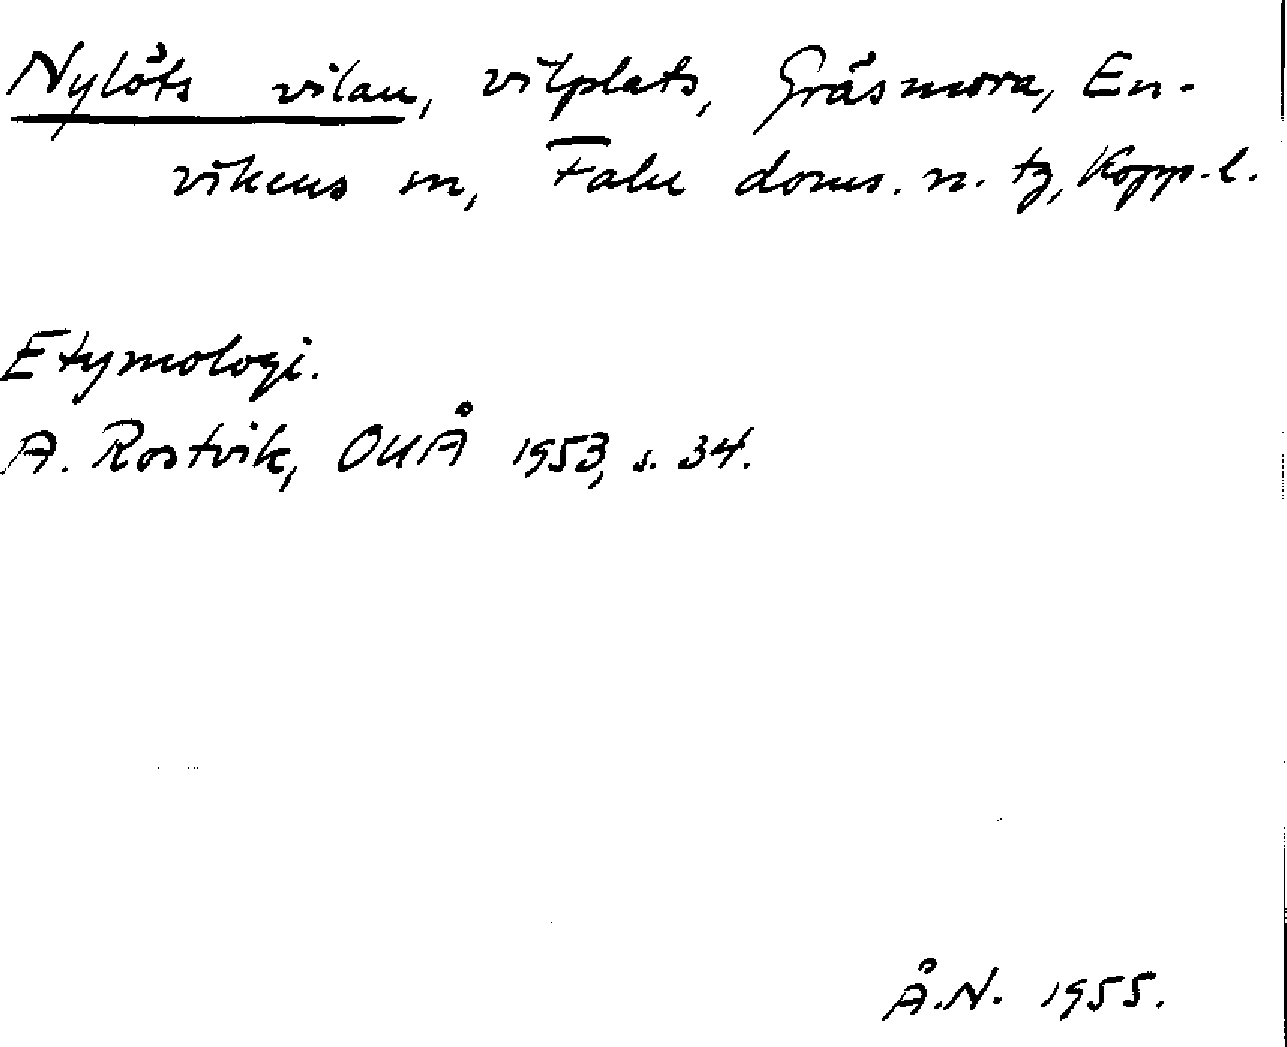 Nylöts vilan, vilplats, Gräsmora, En-
vikens sn, Falu doms. n. tg, Kopp. l.
Etymologi.
A. Rostvik, OUÅ 1953, s. 34.
Å.N. 1955.